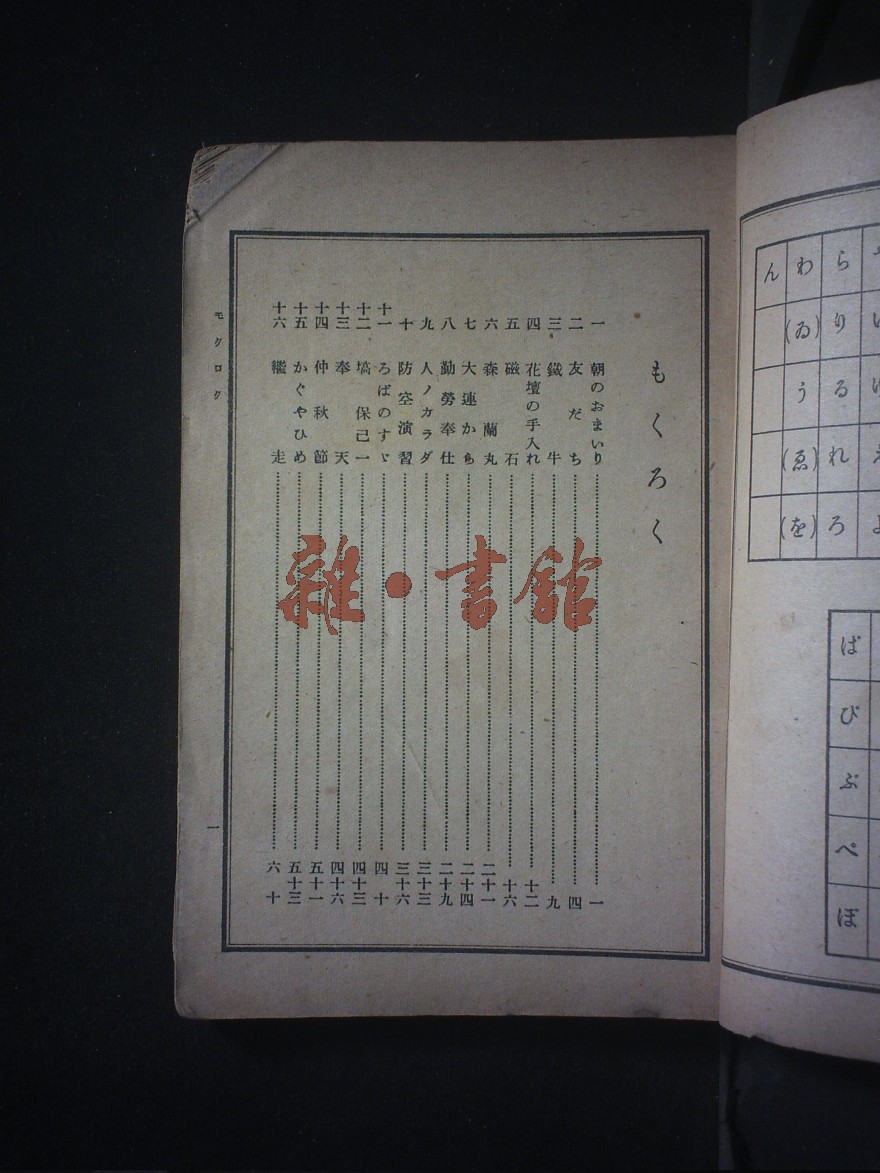 もくろく
一 朝のおまいり 一
二 友だち 四
三 鐵牛 九
四 花壇の手入れ 十二
五 磁石 十六
六 森蘭丸 二十一
七 大連から 二十四
八 勤勞奉仕 二十九
九 人ノカラダ 三十三
十 防空演習 三十六
十一 ろばのすゞ 四十
十二 塙保己一 四十三
十三 奉天 四十六
十四 仲秋節 五十一
十五 かぐやひめ 五十三
十六 繼走 六十
モクロク 一
雜·書館
らりるれろ
わ(ゐ)う(ゑ)(を)
ん
ぱぴぷぺぽ